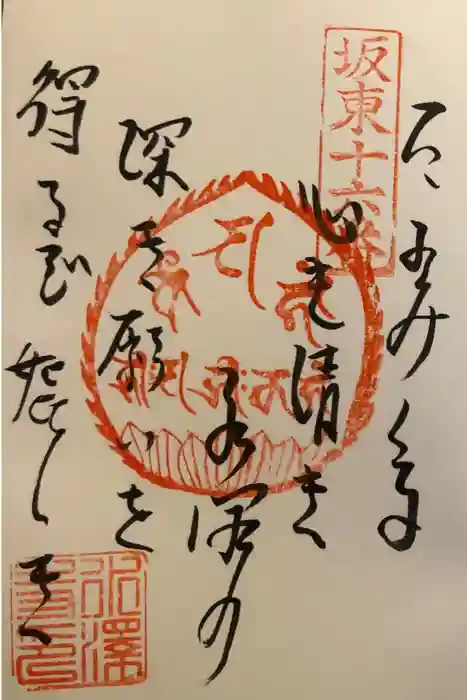 坂東十六番
たのみくる
心も清き
水沢の
深き願いを
得るぞ嬉しき
水澤
寺印